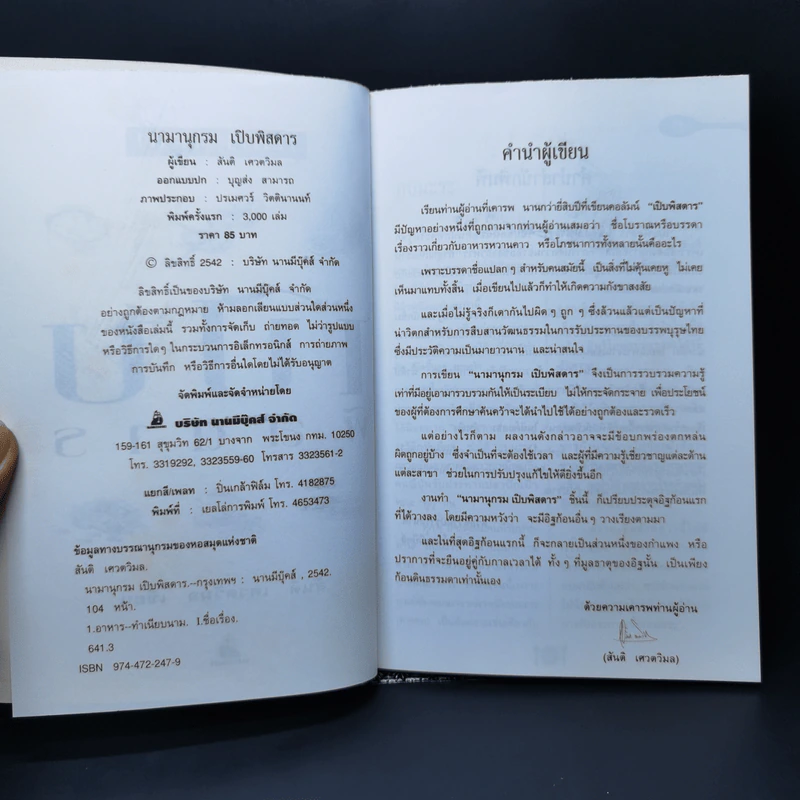 นามานุกรม เปิบพิสดาร
ผู้เขียน : สันติ เศวตวิมล
ออกแบบปก : บุญส่ง สามารถ
ภาพประกอบ : ปรเมศวร์ วิตตินานนท์
พิมพ์ครั้งแรก : 3,000 เล่ม
ราคา 85 บาท
© ลิขสิทธิ์ 2542 : บริษัท นานมีบุ๊คส์ จำกัด
ลิขสิทธิ์เป็นของบริษัท นานมีบุ๊คส์ จำกัด
อย่างถูกต้องตามกฎหมาย ห้ามลอกเลียนแบบส่วนใดส่วนหนึ่ง
ของหนังสือเล่มนี้ รวมทั้งการจัดเก็บ ถ่ายทอด ไม่ว่ารูปแบบ
หรือวิธีการใดๆ ในกระบวนการอิเล็กทรอนิกส์ การถ่ายภาพ
การบันทึก หรือวิธีการอื่นใดโดยไม่ได้รับอนุญาต
จัดพิมพ์และจัดจำหน่ายโดย
บริษัท นานมีบุ๊คส์ จำกัด
159-161 สุขุมวิท 62/1 บางจาก พระโขนง กทม. 10250
โทร. 3319292, 3323559-60 โทรสาร 3323561-2
แยกสี/เพลท : ปิ่นเกล้าฟิล์ม โทร. 4182875
พิมพ์ที่ : เยลโล่การพิมพ์ โทร. 4653473
ข้อมูลทางบรรณานุกรมของหอสมุดแห่งชาติ
สันติ เศวตวิมล.
นามานุกรม เปิบพิสดาร.--กรุงเทพฯ : นานมีบุ๊คส์, 2542.
104 หน้า.
1.อาหาร--ทำเนียบนาม. I.ชื่อเรื่อง.
641.3
ISBN 974-472-247-9
คำนำผู้เขียน
เรียนท่านผู้อ่านที่เคารพ นานกว่ายี่สิบปีที่เขียนคอลัมน์ "เปิบพิสดาร"
มีปัญหาอย่างหนึ่งที่ถูกถามจากท่านผู้อ่านเสมอว่า ชื่อโบราณหรือบรรดา
เรื่องราวเกี่ยวกับอาหารหวานคาว หรือโภชนาการทั้งหลายนั้นคืออะไร
เพราะบรรดาชื่อแปลกๆ สำหรับคนสมัยนี้ เป็นสิ่งที่ไม่คุ้นเคยหู ไม่เคย
เห็นมาแทบทั้งสิ้น เมื่อเขียนไปแล้วก็ทำให้เกิดความกังขาสงสัย
และเมื่อไม่รู้จริงก็เดากันไปผิดๆ ถูกๆ ซึ่งล้วนแล้วแต่เป็นปัญหาที่
น่าวิตกสำหรับการสืบสานวัฒนธรรมในการรับประทานของบรรพบุรุษไทย
ซึ่งมีประวัติความเป็นมายาวนาน และน่าสนใจ
การเขียน "นามานุกรม เปิบพิสดาร" จึงเป็นการรวบรวมความรู้
เท่าที่มีอยู่เอามารวบรวมกันให้เป็นระเบียบ ไม่ให้กระจัดกระจาย เพื่อประโยชน์
ของผู้ที่ต้องการศึกษาค้นคว้าจะได้นำไปใช้ได้อย่างถูกต้องและรวดเร็ว
แต่อย่างไรก็ตาม ผลงานดังกล่าวอาจจะมีข้อบกพร่องตกหล่น
ผิดถูกอยู่บ้าง ซึ่งจำเป็นที่จะต้องใช้เวลา และผู้ที่มีความรู้เชี่ยวชาญแต่ละด้าน
แต่ละสาขา ช่วยในการปรับปรุงแก้ไขให้ดียิ่งขึ้นอีก
งานทำ "นามานุกรม เปิบพิสดาร" ชิ้นนี้ ก็เปรียบประดุจอิฐก้อนแรก
ที่ได้วางลง โดยมีความหวังว่า จะมีอิฐก้อนอื่นๆ วางเรียงตามมา
และในที่สุดอิฐก้อนแรกนี้ ก็จะกลายเป็นส่วนหนึ่งของกำแพง หรือ
ปราการที่จะยืนอยู่คู่กับกาลเวลาได้ ทั้งๆ ที่มูลธาตุของอิฐนั้น เป็นเพียง
ก้อนดินธรรมดาเท่านั้นเอง
ด้วยความเคารพท่านผู้อ่าน
(สันติ เศวตวิมล)